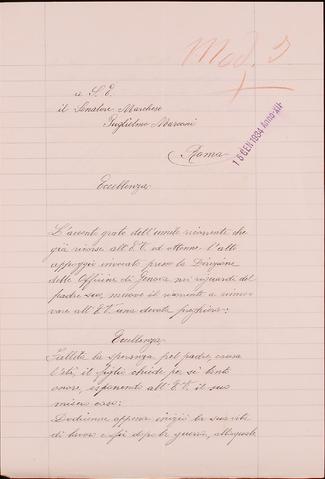 Mod. 5
a S. E.
il Senatore Marchese
Guglielmo Marconi
Roma
16 GEN 1934 Anno XII
Eccellenza
L'accento grato dell'umile ricorrente che
già ricorse all'E.V. ed ottenne l'alto
appoggio invocato presso la Direzione
delle Officine di Genova nei riguardi del
padre suo, muove il ricorrente a rinno-
vare all'E.V. una devota preghiera:
Eccellenza
Fallita la speranza pel padre, causa
l'età, il figlio chiede per sè tanto
onore, esponendo all'E.V. il suo
misero caso:
Dodicenne appena iniziò la sua vita
di lavoro e poi dopo la guerra, allorquando